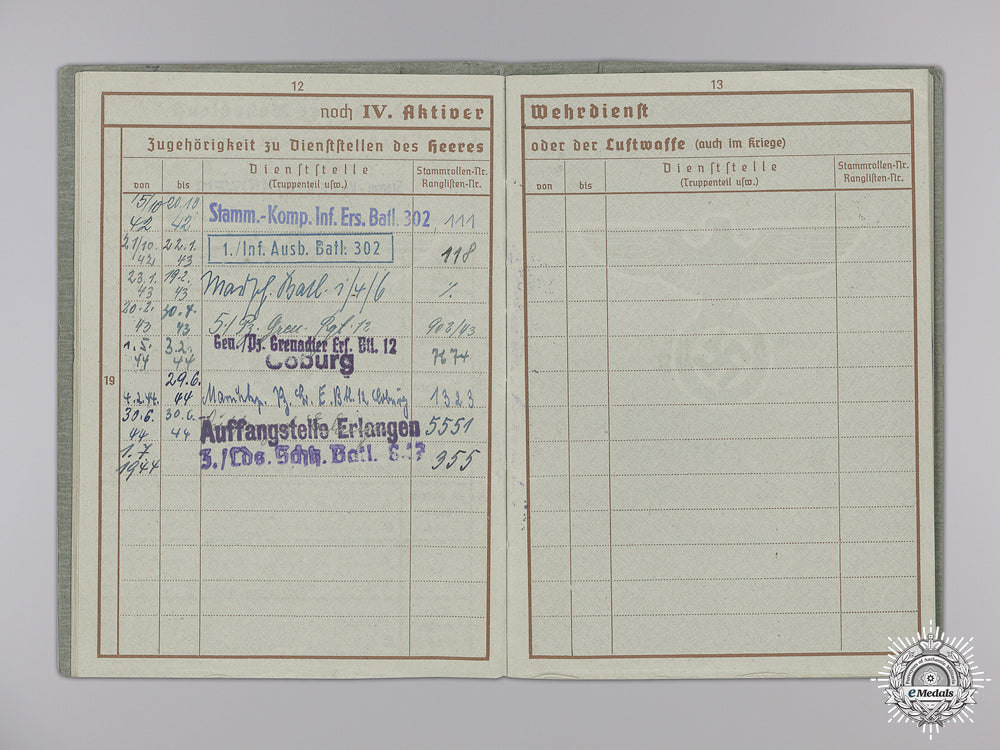 12
noch IV. Aktiver
Zugehörigkeit zu Dienststellen des Heeres
von
bis
Dienststelle
(Truppenteil usw.)
Stammrollen-Nr.
Ranglisten-Nr.
15/10 42
20.10 42
Stamm.-Komp. Inf. Ers. Batl. 302
111
21/10. 42
22.1. 43
1./Inf. Ausb. Batl. 302
118
23.1. 43
19.2. 43
Marsch. Batl.
20.2. 43
30.4. 43
5./Pz. Gren. Rgt. 12
902/43
1.5. 44
3.2. 44
Gen./Pz. Grenadier Ers. Btl. 12
Coburg
7674
19
4.2.44.
29.6. 44
E. Btl. 12 Coburg
1323
30.6. 44
30.6. 44
Auffangstelle Erlangen
5551
1.7 1944
3./Lds. Schtz. Batl.
355
13
Wehrdienst
oder der Luftwaffe (auch im Kriege)
von
bis
Dienststelle
(Truppenteil usw.)
Stammrollen-Nr.
Ranglisten-Nr.
eMedals